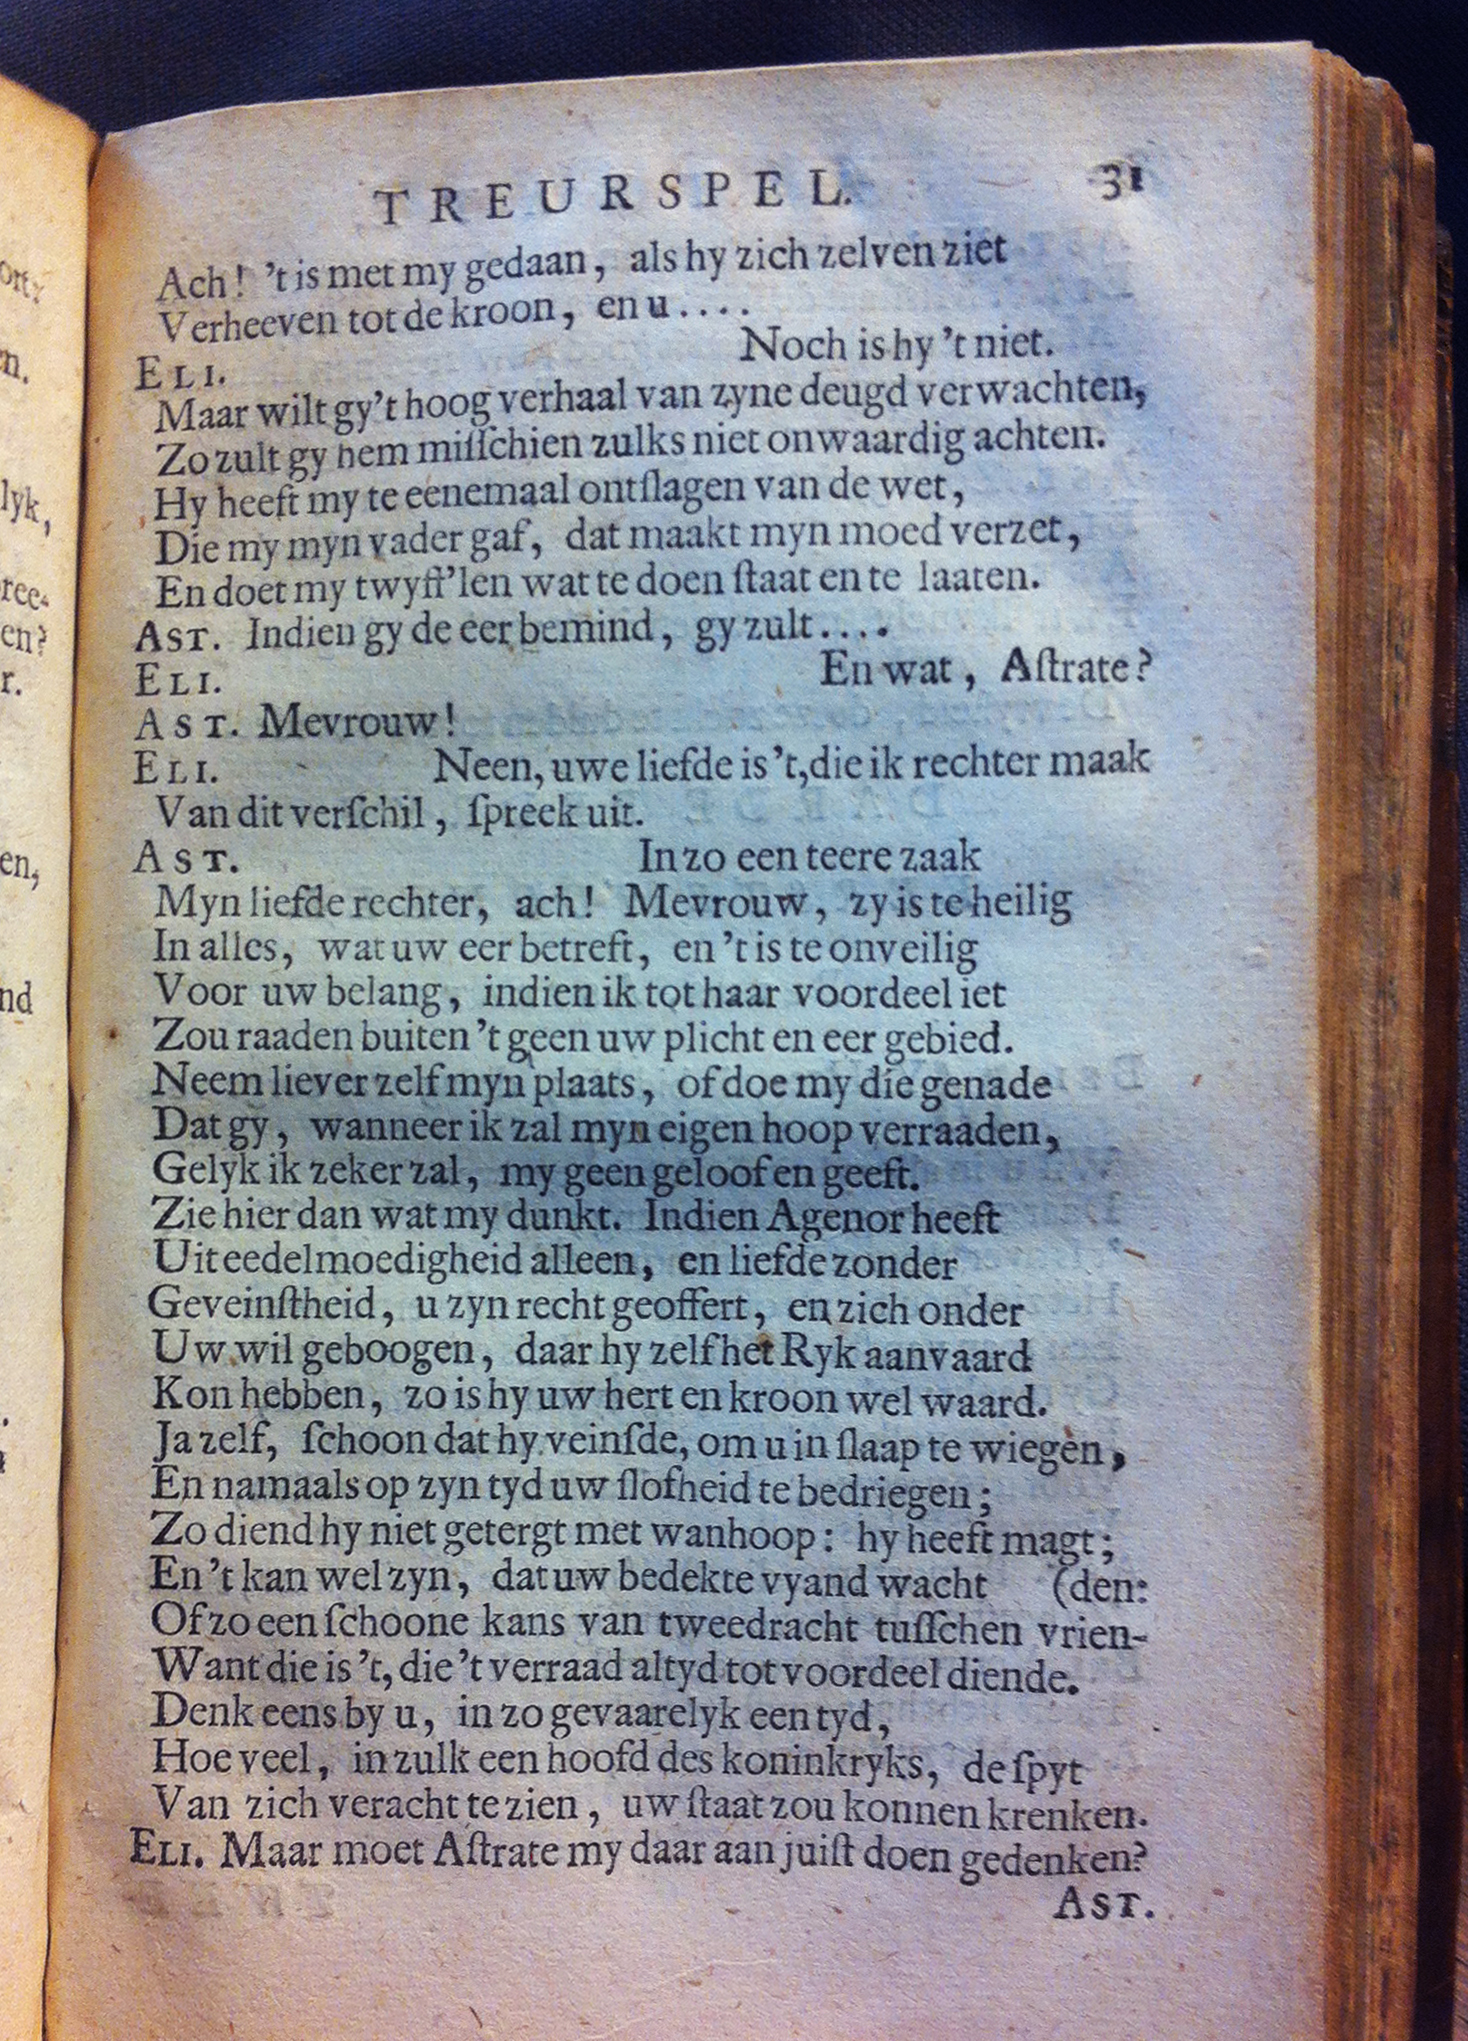 ort:
n.
lyk,
ree-
en?
r.
en,
nd
.
TREURSPEL. 31
Ach! 't is met my gedaan, als hy zich zelven ziet
Verheeven tot de kroon, en u....
ELI. Noch is hy 't niet.
Maar wilt gy 't hoog verhaal van zyne deugd verwachten,
Zo zult gy hem miſſchien zulks niet onwaardig achten.
Hy heeft my te eenemaal ontſlagen van de wet,
Die my myn vader gaf, dat maakt myn moed verzet,
En doet my twyff'len wat te doen ſtaat en te laaten.
AST. Indien gy de eer bemind, gy zult....
ELI. En wat, Aſtrate?
AST. Mevrouw!
ELI. Neen, uwe liefde is 't, die ik rechter maak
Van dit verſchil, ſpreek uit.
AST. In zo een teere zaak
Myn liefde rechter, ach! Mevrouw, zy is te heilig
In alles, wat uw eer betreft, en 't is te onveilig
Voor uw belang, indien ik tot haar voordeel iet
Zou raaden buiten 't geen uw plicht en eer gebied.
Neem liever zelf myn plaats, of doe my die genade
Dat gy, wanneer ik zal myn eigen hoop verraaden,
Gelyk ik zeker zal, my geen geloof en geeft.
Zie hier dan wat my dunkt. Indien Agenor heeft
Uit eedelmoedigheid alleen, en liefde zonder
Geveinſtheid, u zyn recht geoffert, en zich onder
Uw wil geboogen, daar hy zelf het Ryk aanvaard
Kon hebben, zo is hy uw hert en kroon wel waard.
Ja zelf, ſchoon dat hy veinſde, om u in ſlaap te wiegen,
En namaals op zyn tyd uw ſlofheid te bedriegen;
Zo diend hy niet getergt met wanhoop: hy heeft magt;
En 't kan wel zyn, dat uw bedekte vyand wacht (den:
Of zo een ſchoone kans van tweedracht tuſſchen vrien-
Want die is 't, die 't verraad altyd tot voordeel diende.
Denk eens by u, in zo gevaarelyk een tyd,
Hoe veel, in zulk een hoofd des koninkryks, de ſpyt
Van zich veracht te zien, uw ſtaat zou konnen krenken.
ELI. Maar moet Aſtrate my daar aan juiſt doen gedenken?
AST.